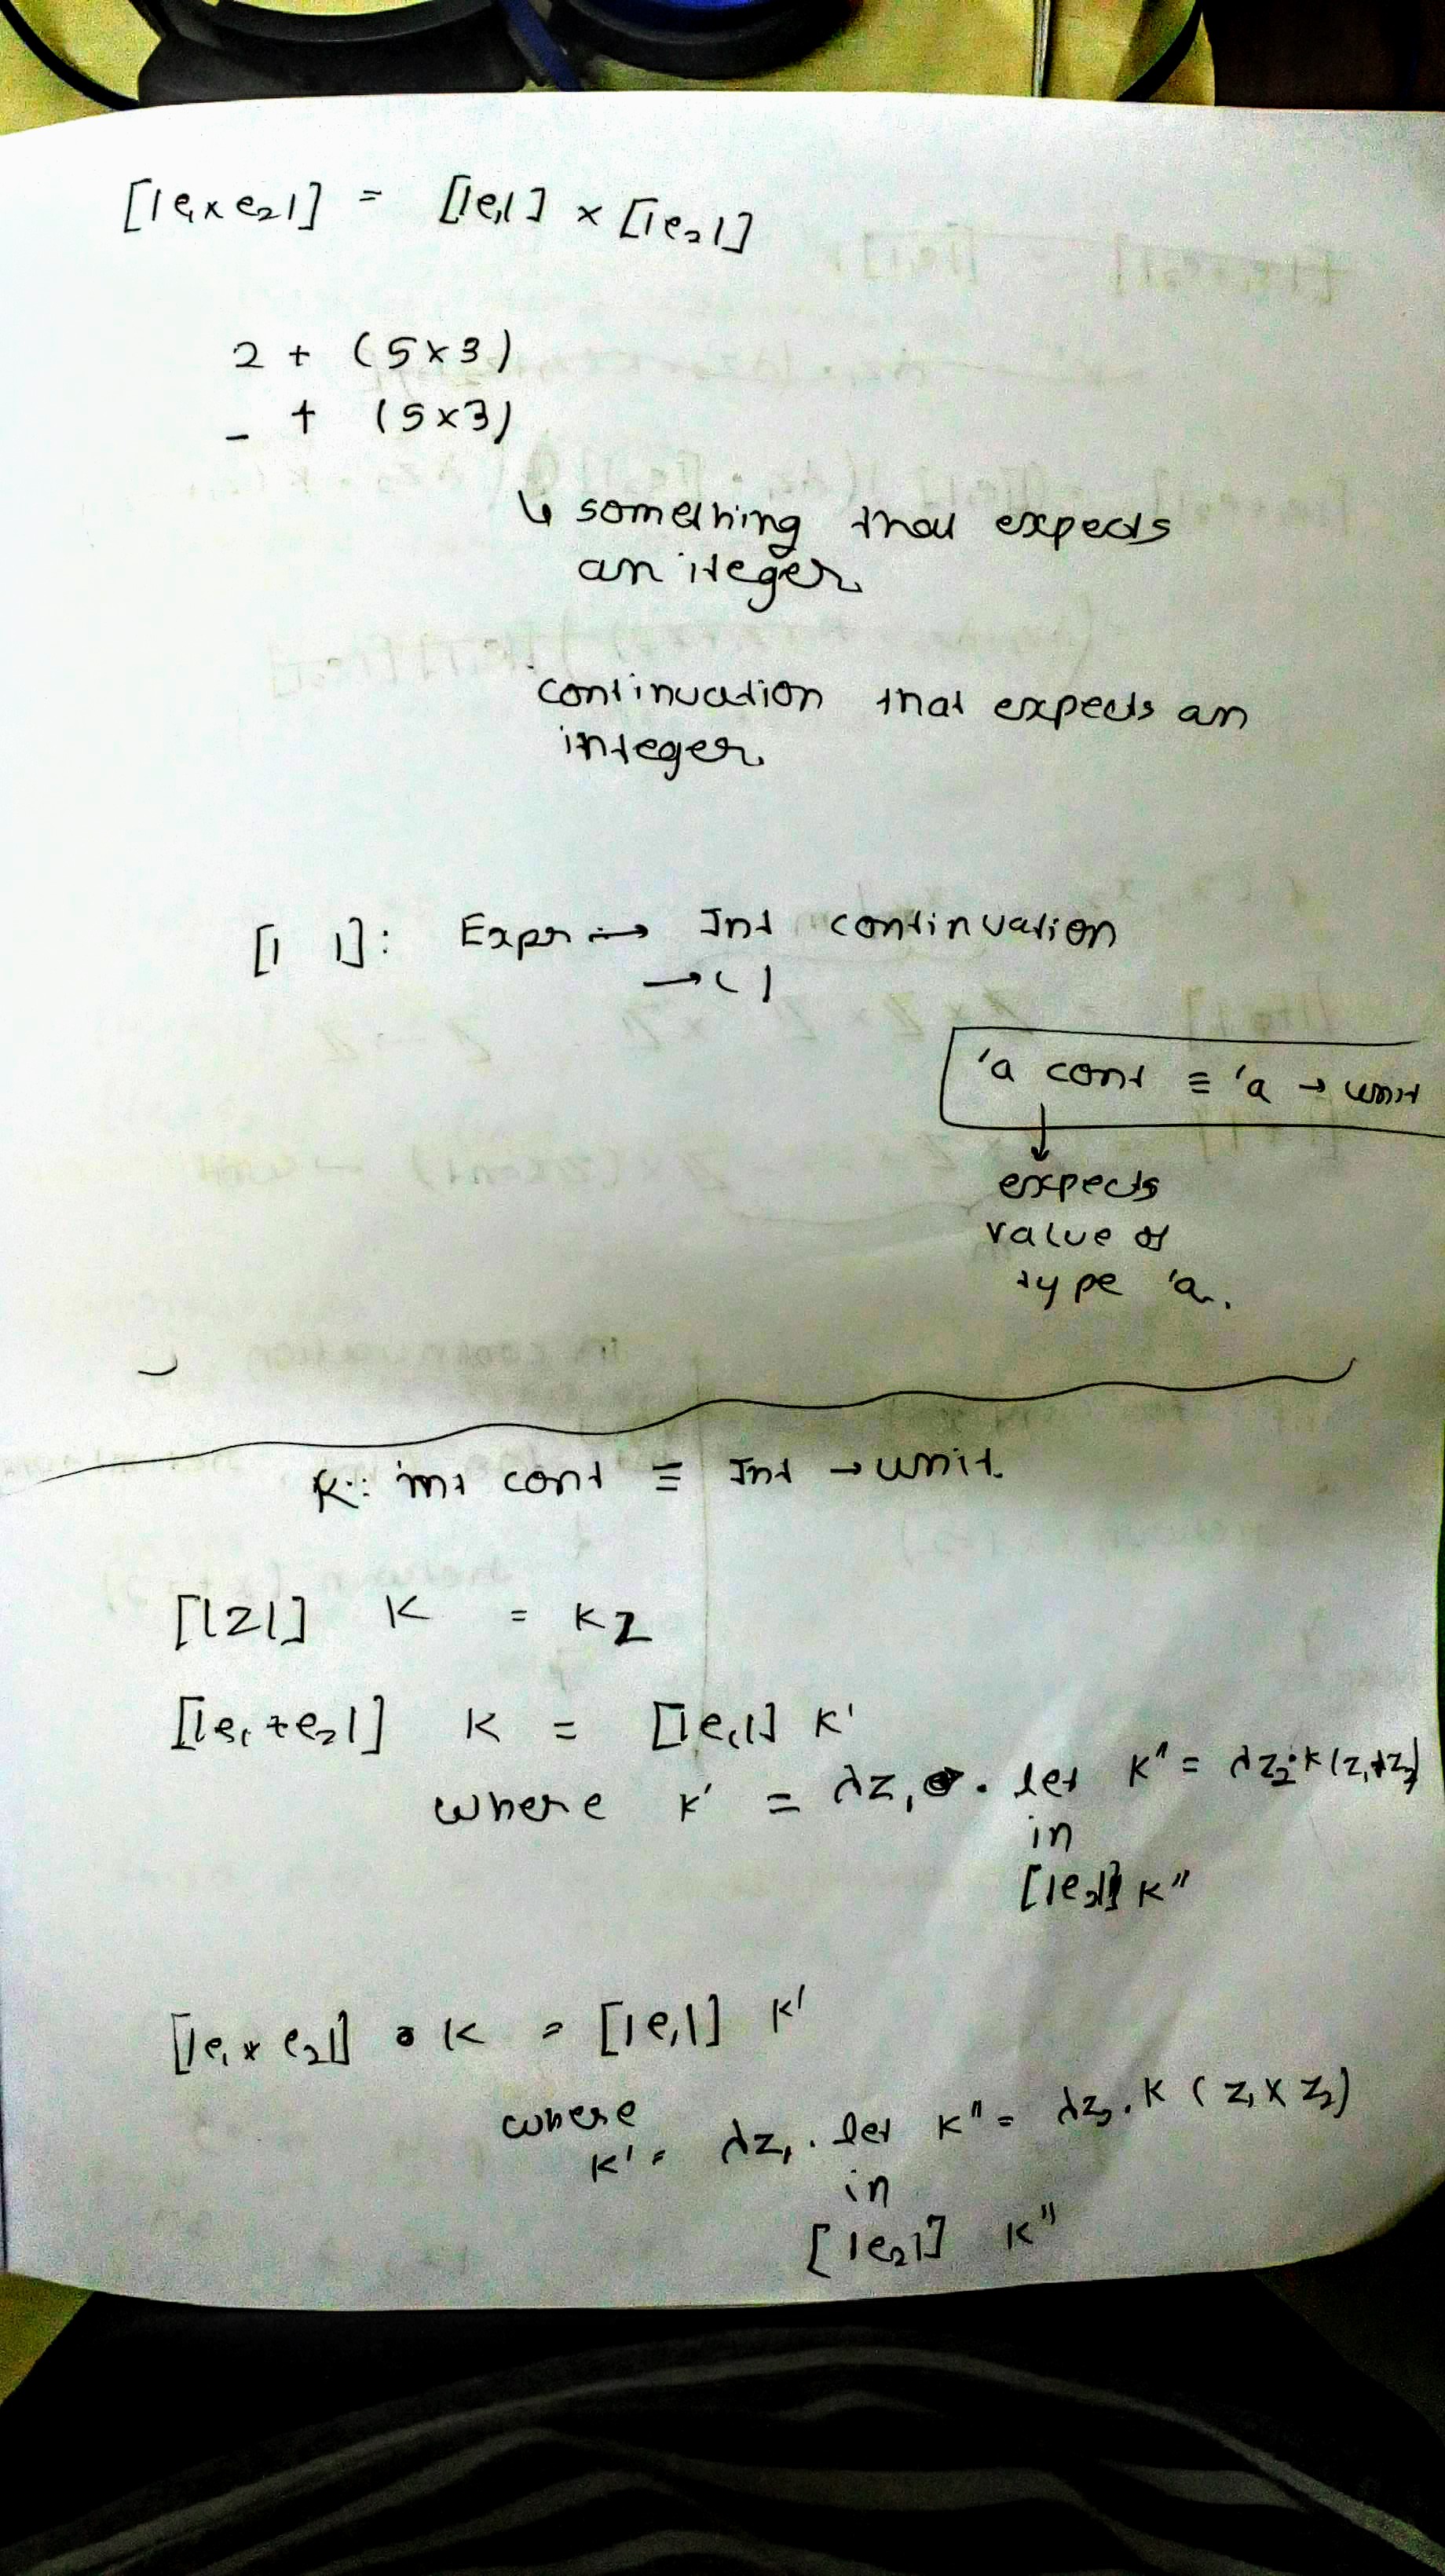 [|e₁ x e₂|] = [|e₁|] x [|e₂|]
2 + (5x3)
_ + (5x3)
↳ something that expects
an iteger.
continuation that expects an
integer.
[| |]: Expr → Int continuation
→ ( )
'a cont ≡ 'a → unit
expects
value of
type 'a.
K: int cont ≡ Int → unit.
[|z|] K = K z
[|e₁+e₂|] K = [|e₁|] K'
where K' = λz₁. let K" = λz₂. K(z₁+z₂)
in
[|e₂|] K"
[|e₁ x e₂|] K = [|e₁|] K'
where
K' = λz₁. let K" = λz₂. K (z₁ x z₂)
in
[|e₂|] K"